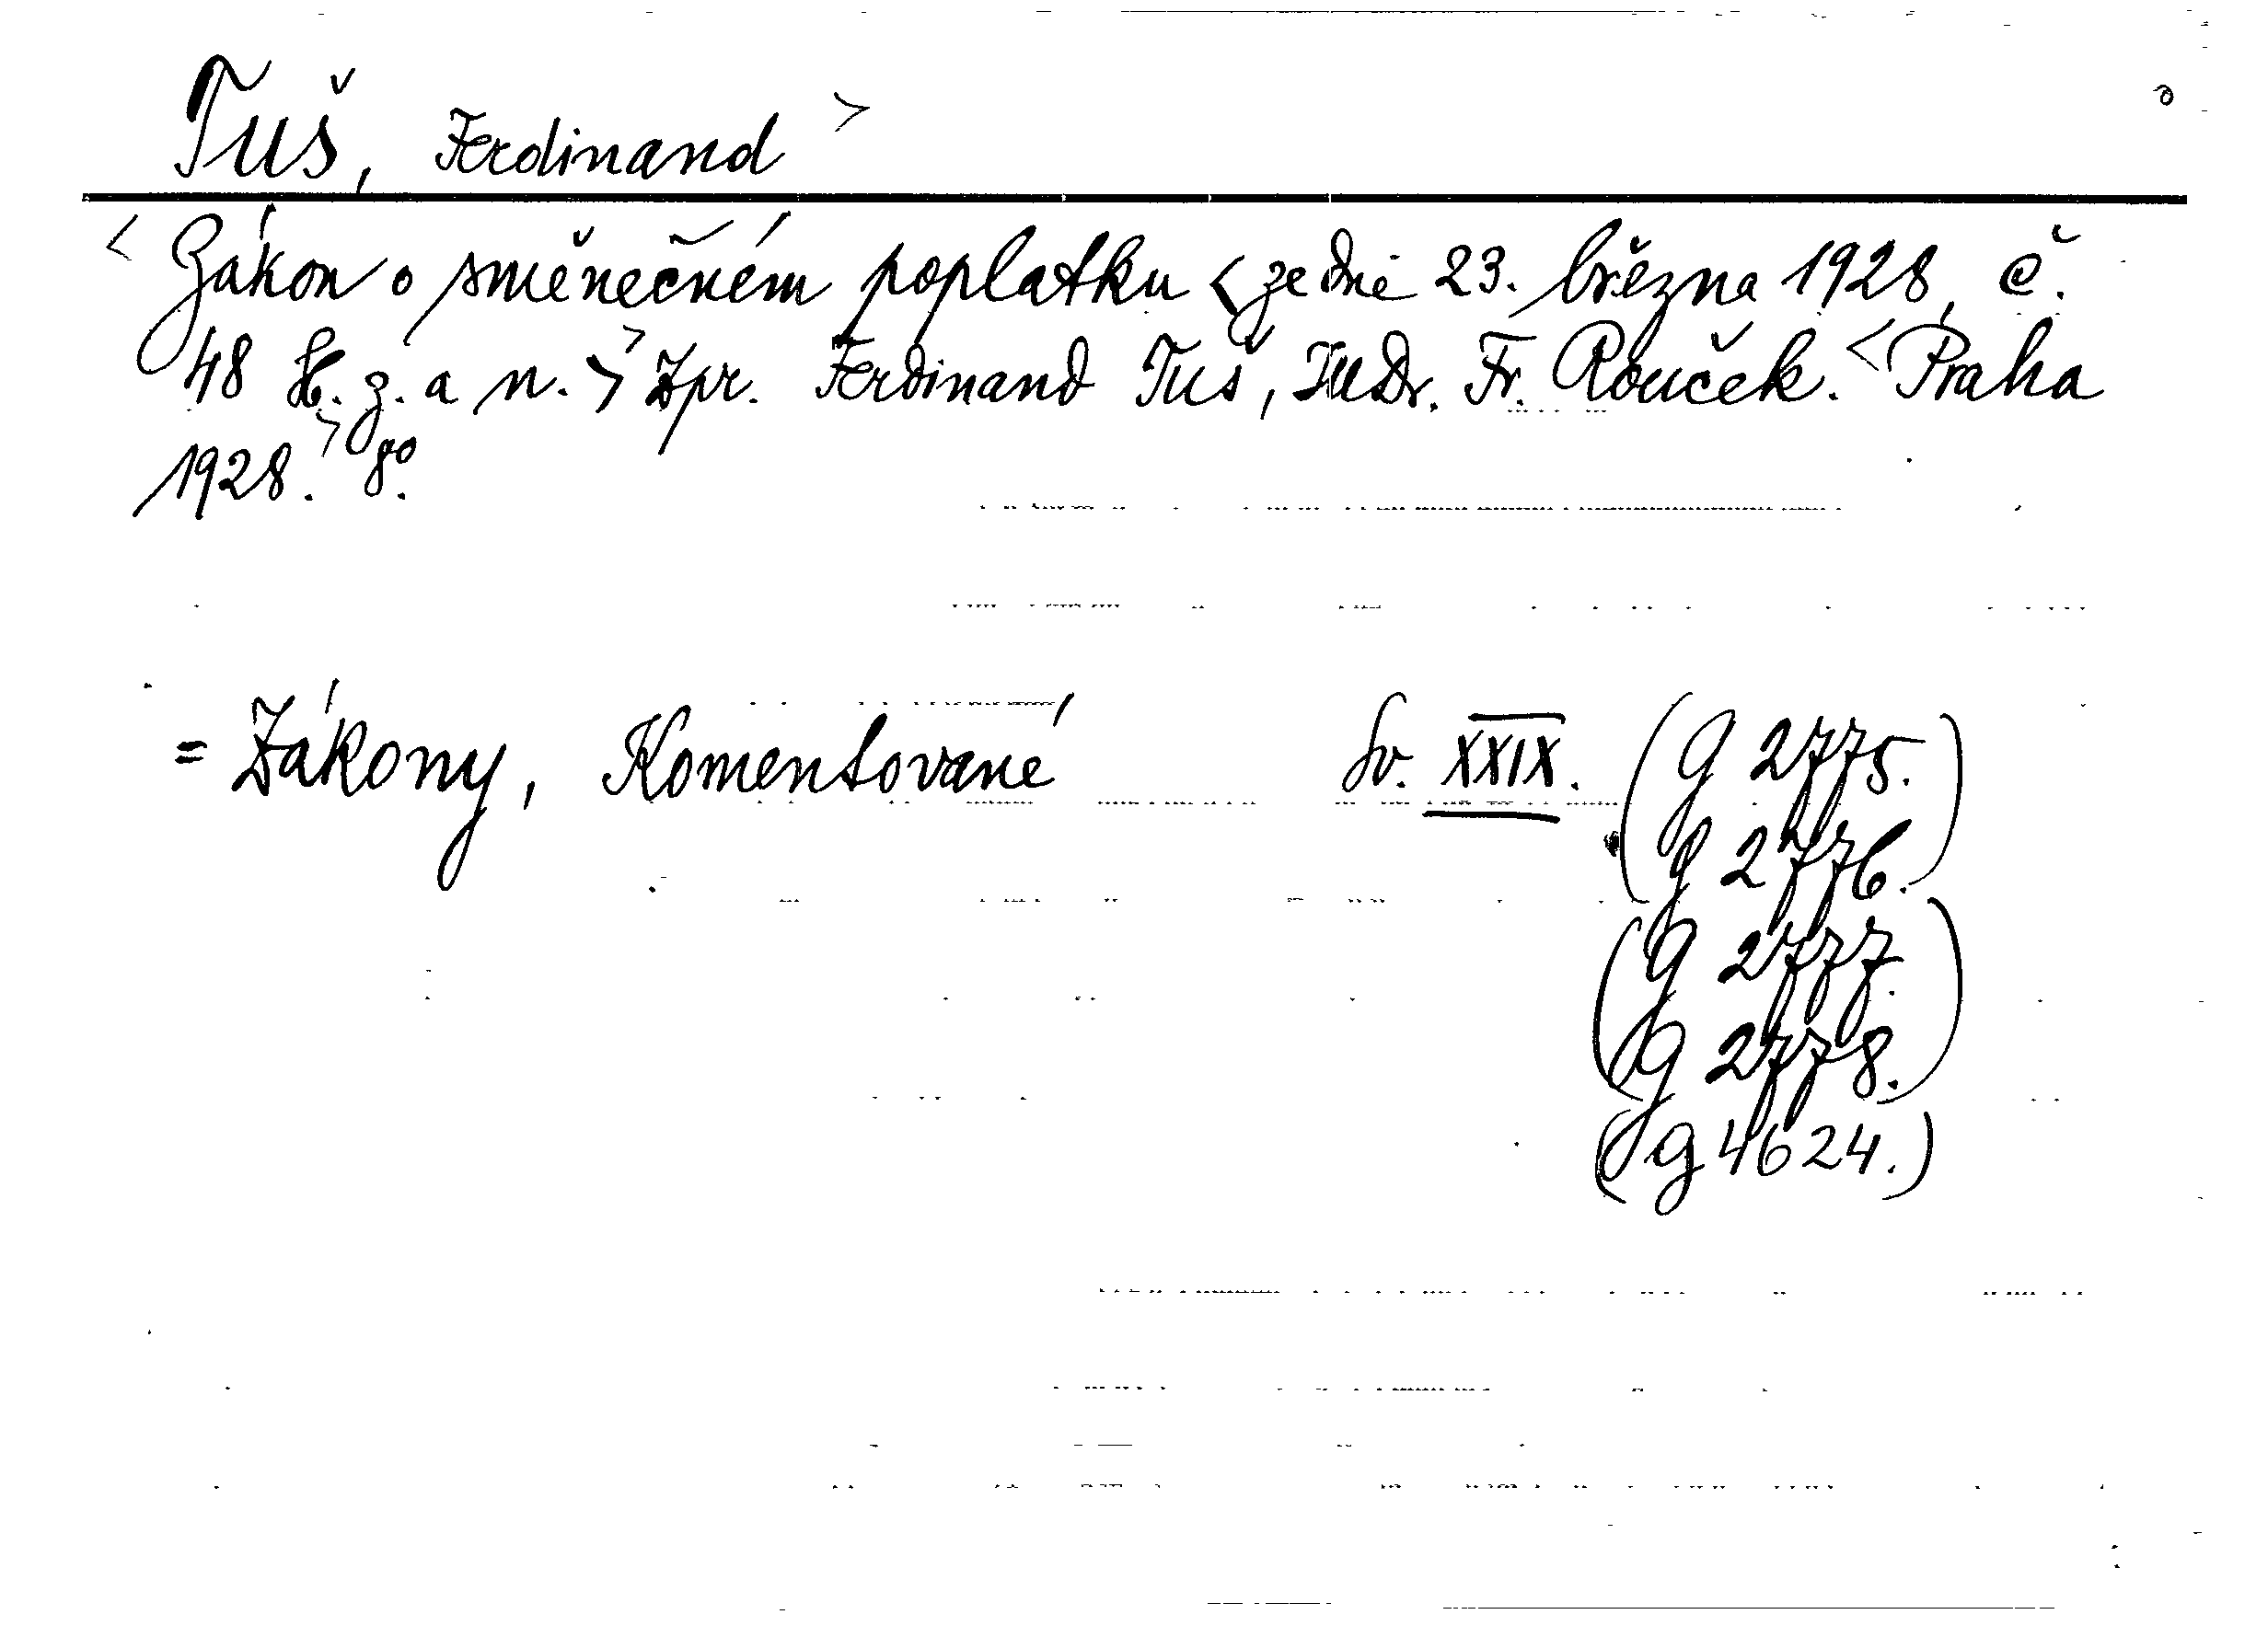 Tuš, Ferdinand >
< Zákon o směnečném poplatku < ze dne 23. března 1928, č.
48 Sb. z. a n. > Zpr. Ferdinand Tuš, JUDr. Fr. Rouček. < Praha
1928. > 8º.
= Zákony, Komentované Sv. XXIX. (g 2775.)
g 2776.
(g 2777.
g 2778.)
(g 4624.)